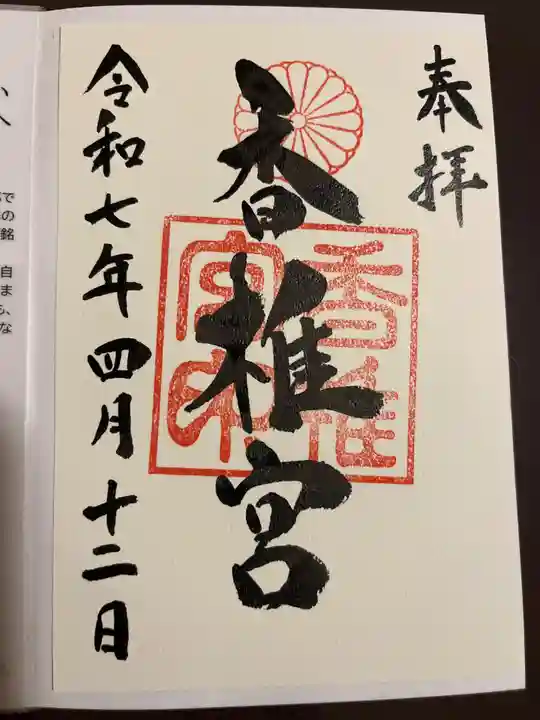 奉拝
香椎宮
香椎宮印
令和七年四月十二日
で
の
銘
自
ま
な